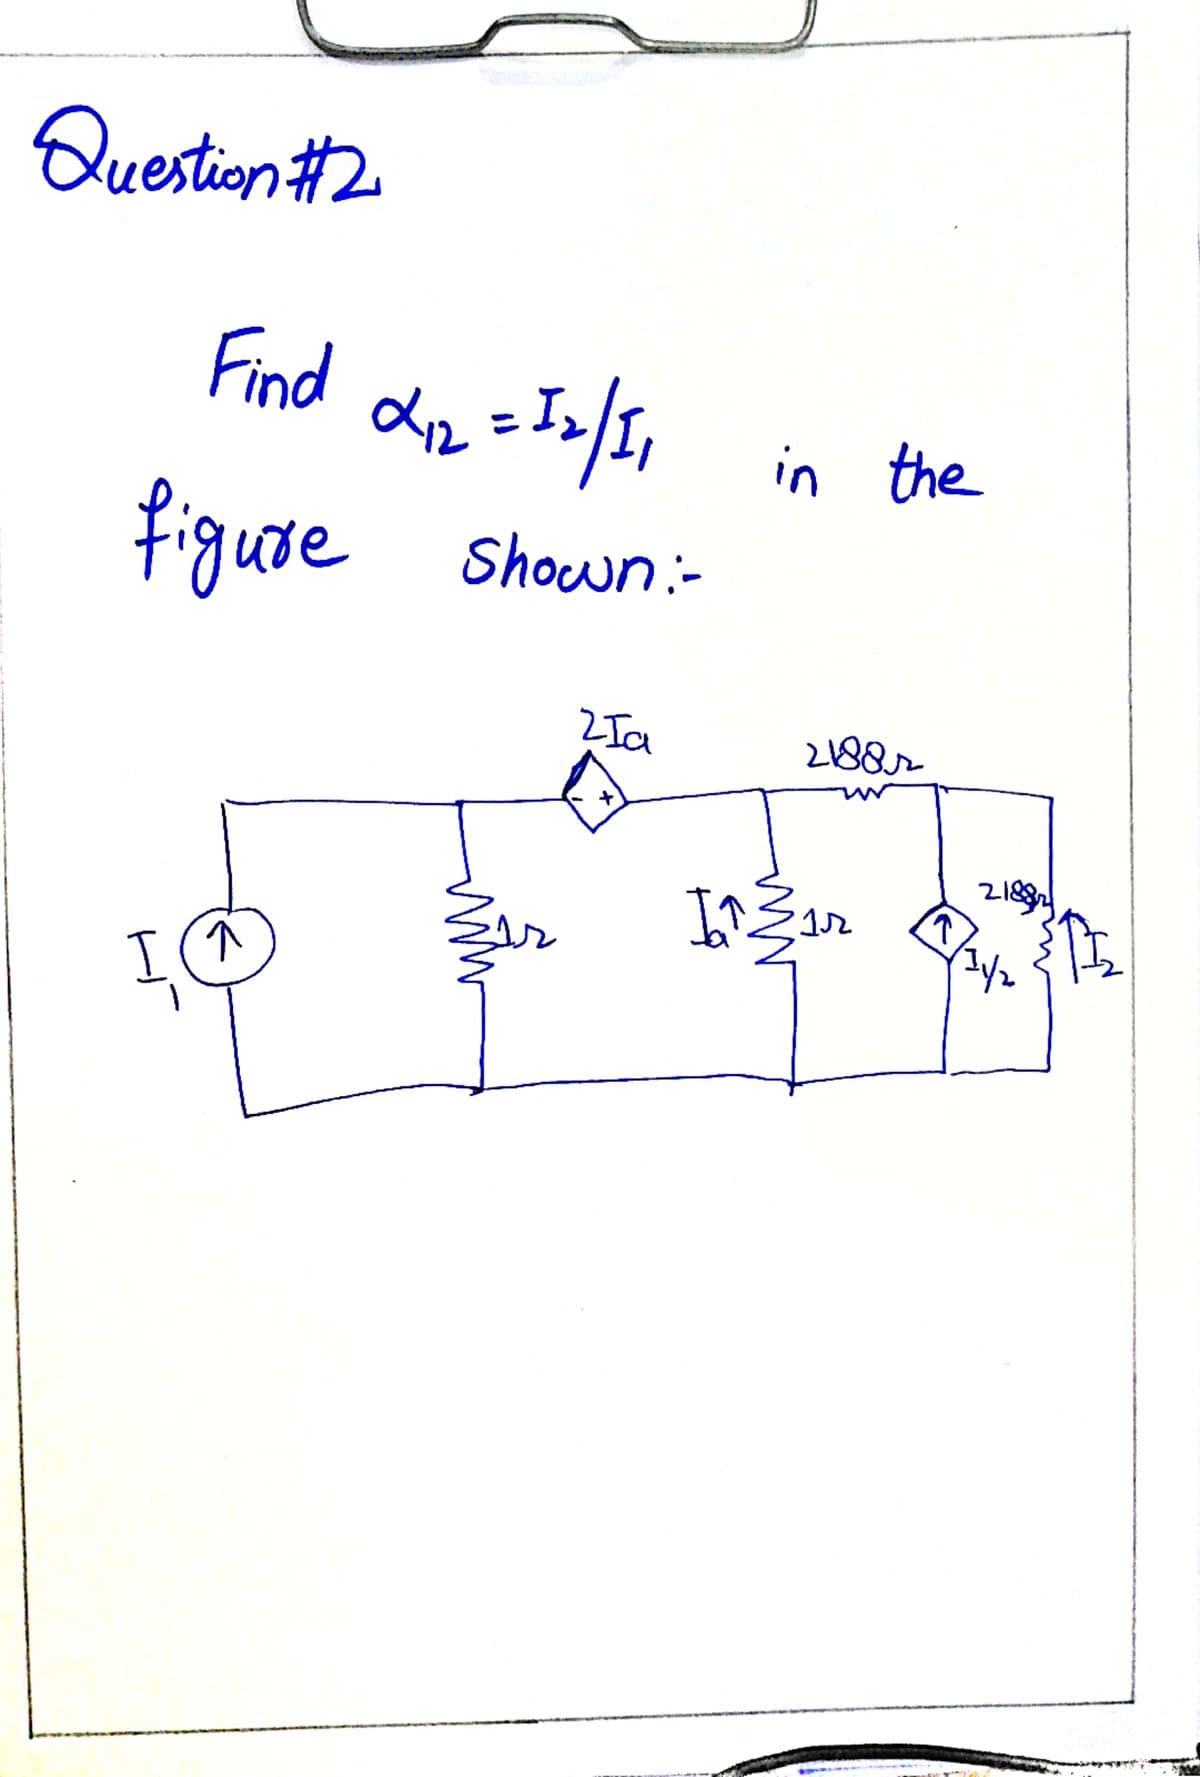 Question #2
Find α12 = I2/I1 in the
figure shown:-
2Ia
2188Ω
I1
1Ω
Ia
1Ω
I1/2
2188Ω
I2
- +